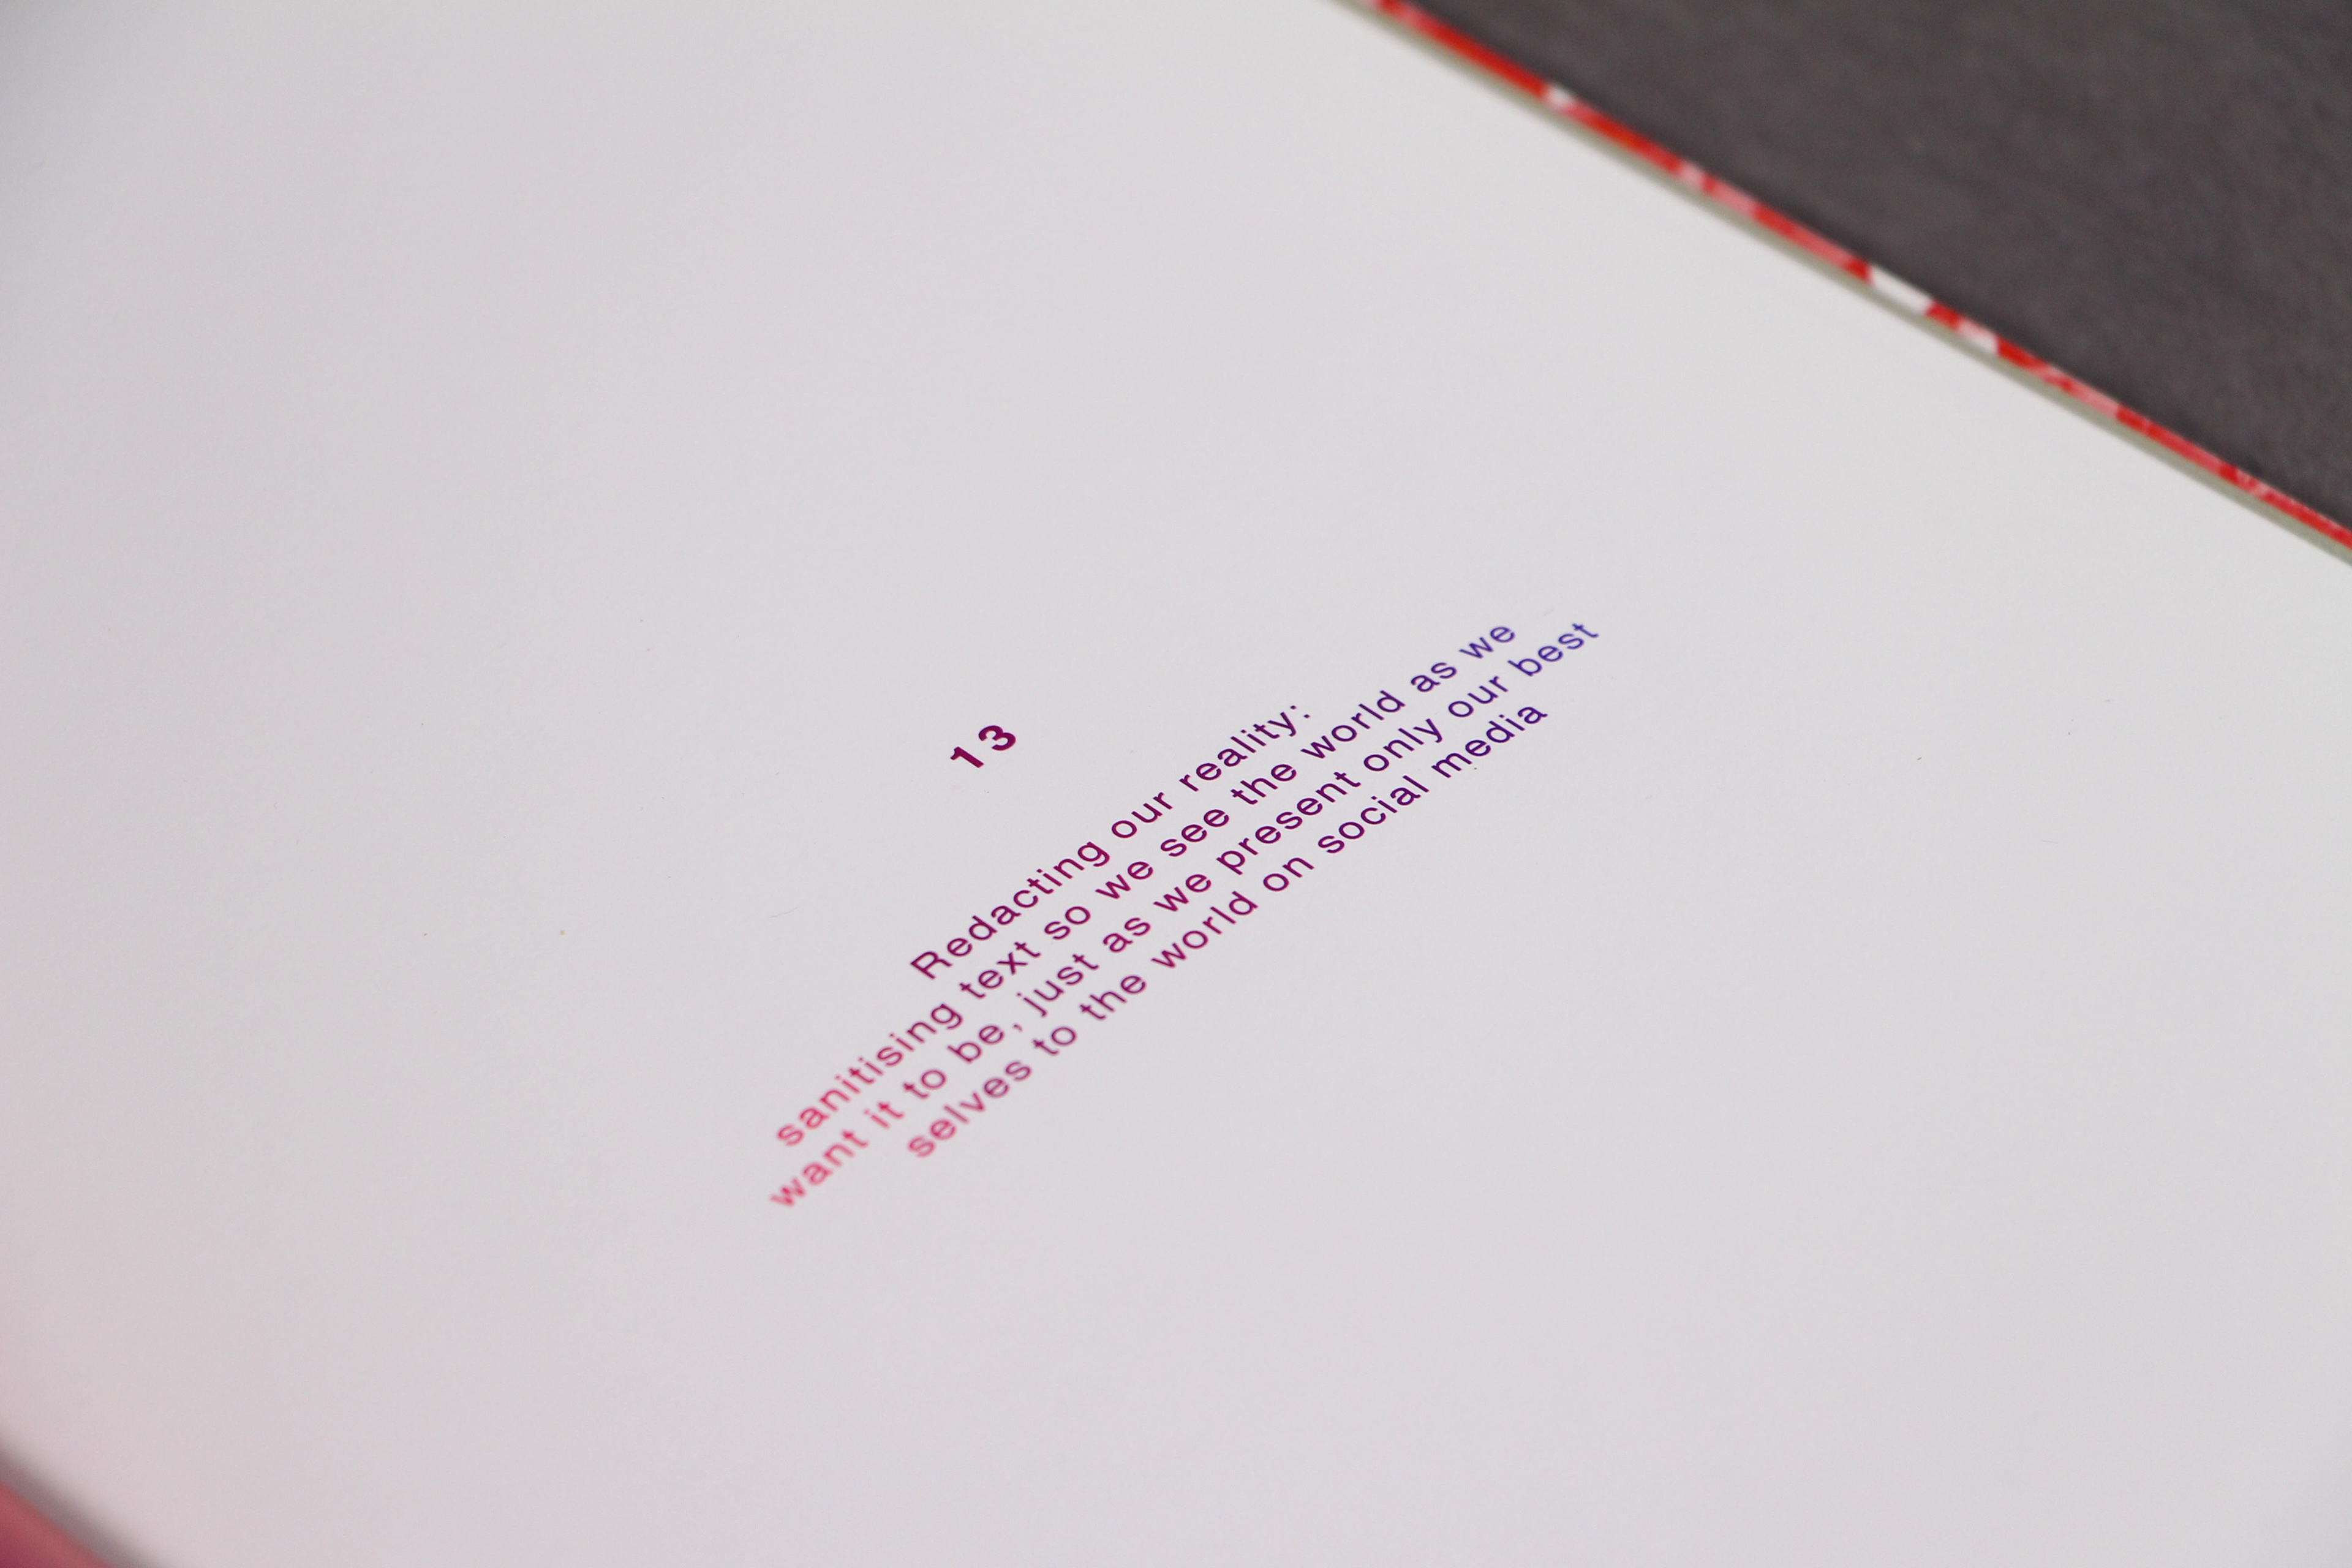 13
Redacting our reality:
sanitising text so we see the world as we
want it to be, just as we present only our best
selves to the world on social media